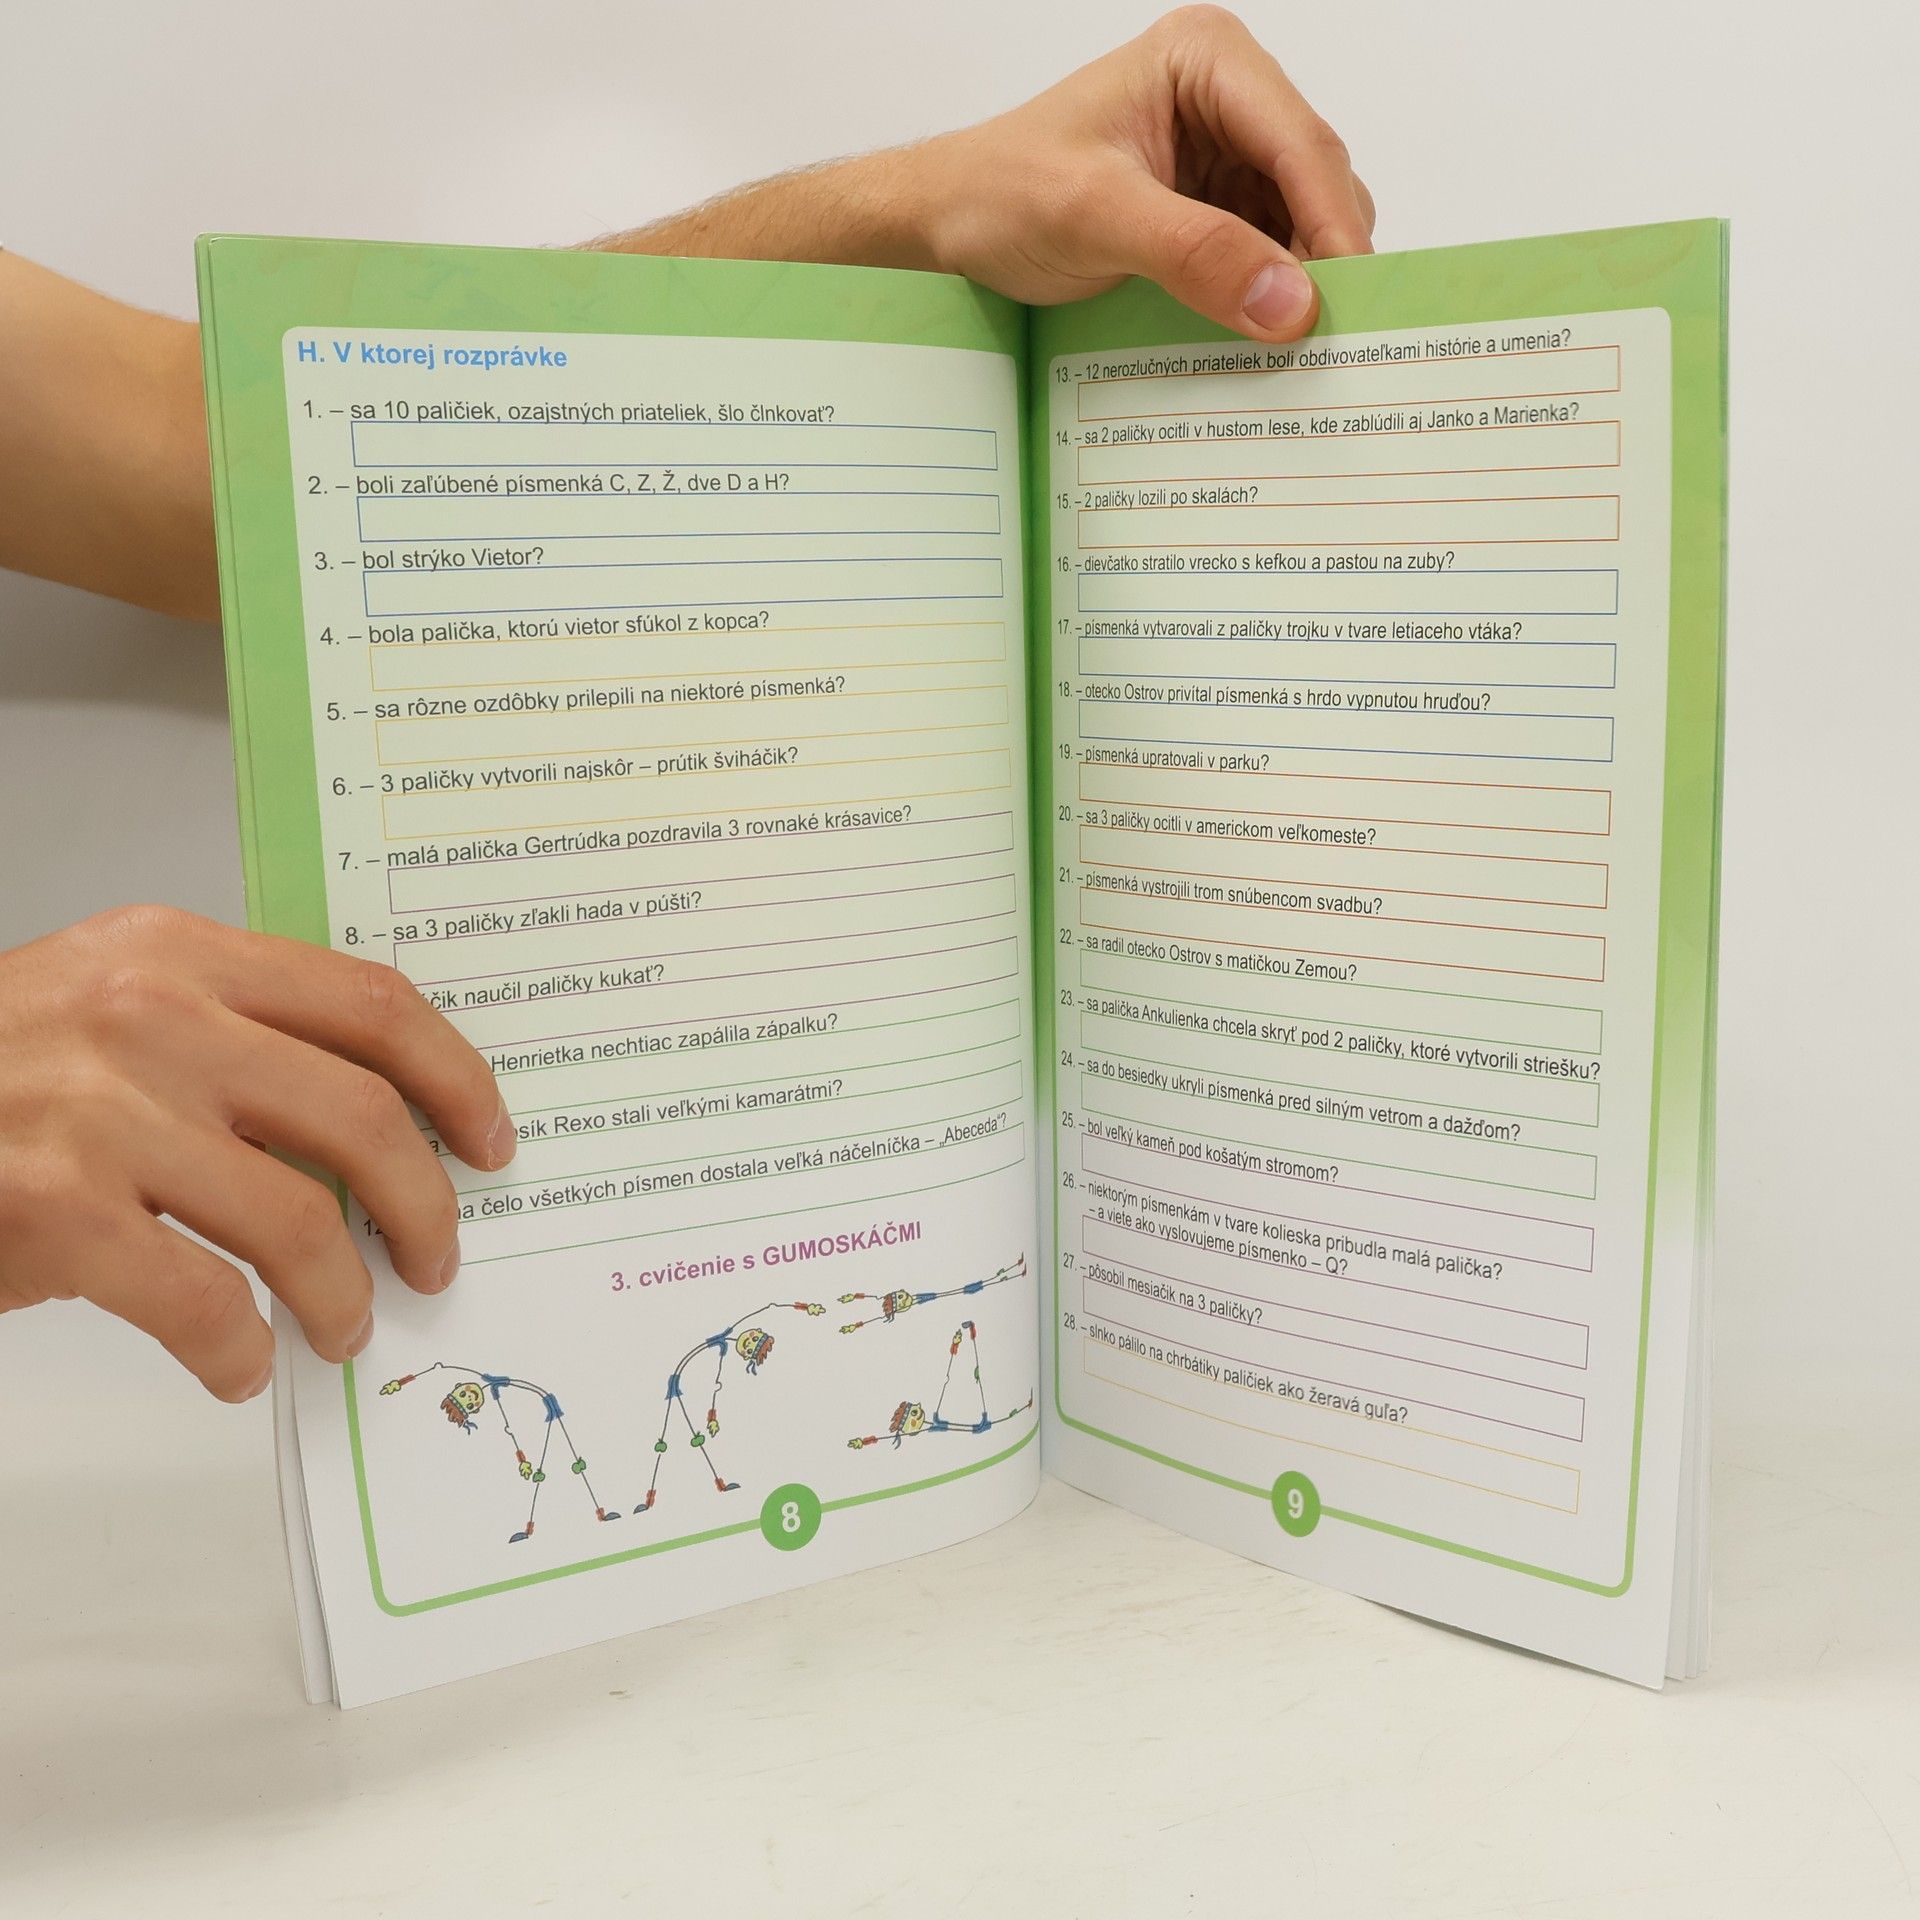 H. V ktorej rozprávke
1. – sa 10 paličiek, ozajstných priateliek, šlo člnkovať?
2. – boli zaľúbené písmenká C, Z, Ž, dve D a H?
3. – bol strýko Vietor?
4. – bola palička, ktorú vietor sfúkol z kopca?
5. – sa rôzne ozdôbky prilepili na niektoré písmenká?
6. – 3 paličky vytvorili najskôr – prútik šviháčik?
7. – malá palička Gertrúdka pozdravila 3 rovnaké krásavice?
8. – sa 3 paličky zľakli hada v púšti?
naučil paličky kukať?
Henrietka nechtiac zapálila zápalku?
Rexo stali veľkými kamarátmi?
na čelo všetkých písmen dostala veľká náčelníčka – „Abeceda“?
3. cvičenie s GUMOSKÁČMI
8
13. – 12 nerozlučných priateliek boli obdivovateľkami histórie a umenia?
14. – sa 2 paličky ocitli v hustom lese, kde zablúdili aj Janko a Marienka?
15. – 2 paličky lozili po skalách?
16. – dievčatko stratilo vrecko s kefkou a pastou na zuby?
17. – písmenká vytvarovali z paličky trojku v tvare letiaceho vtáka?
18. – otecko Ostrov privítal písmenká s hrdo vypnutou hruďou?
19. – písmenká upratovali v parku?
20. – sa 3 paličky ocitli v americkom veľkomeste?
21. – písmenká vystrojili trom snúbencom svadbu?
22. – sa radil otecko Ostrov s matičkou Zemou?
23. – sa palička Ankulienka chcela skryť pod 2 paličky, ktoré vytvorili striešku?
24. – sa do besiedky ukryli písmenká pred silným vetrom a dažďom?
25. – bol veľký kameň pod košatým stromom?
26. – niektorým písmenkám v tvare kolieska pribudla malá palička?
– a viete ako vyslovujeme písmenko – Q?
27. – pôsobil mesiačik na 3 paličky?
28. – slnko pálilo na chrbátiky paličiek ako žeravá guľa?
9